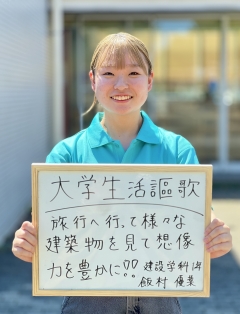 大学生活謳歌
旅行へ行って様々な
建築物を見て想像
力を豊かに!! 建設学科1年
飯村 優業